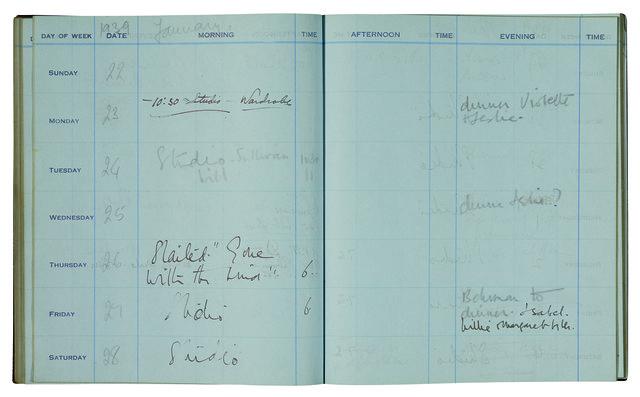 1939 January.
DAY OF WEEK DATE MORNING TIME AFTERNOON TIME EVENING TIME
SUNDAY 22
MONDAY 23 -10:30 Studio - Wardrobe dinner Violette
+ Leslie.
TUESDAY 24 Studio - Sullivan 10:30
till 11
WEDNESDAY 25 dinner Leslie?
THURSDAY 26 Started "Gone
with the wind" 6.
FRIDAY 27 Studio 6 Behrman to
dinner. Isabel.
Willie Margaret
SATURDAY 28 Studio